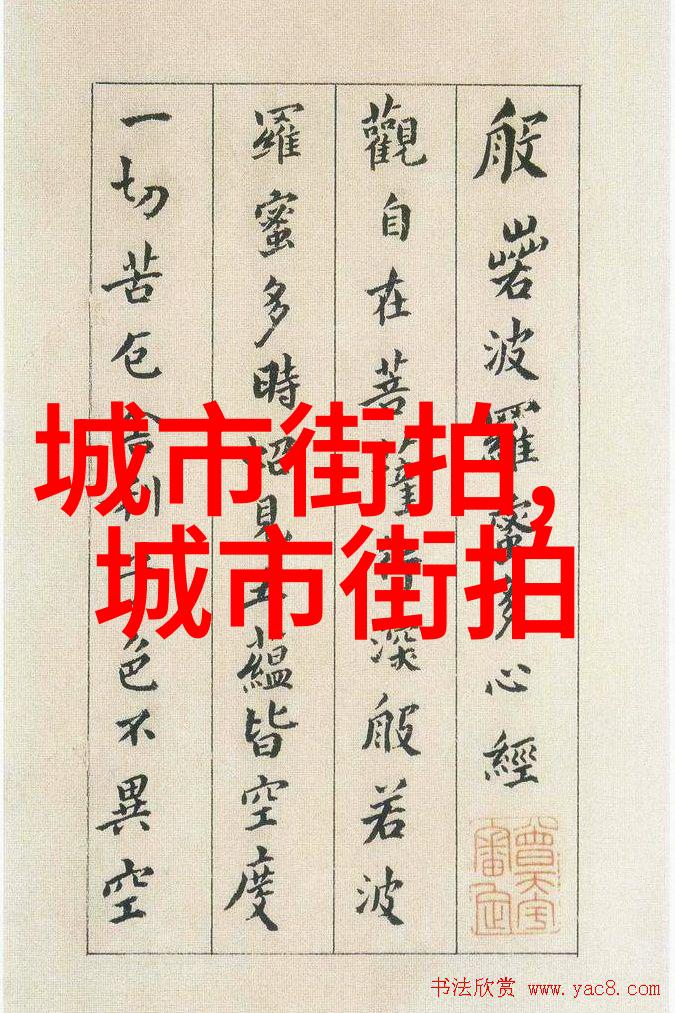 般若波羅蜜多心經
觀自在菩薩行深般若波
羅蜜多時炤見五蘊皆空度
一切苦厄舍利子色不異空
城市街拍,
城市街拍
书法欣赏 www.yac8.com